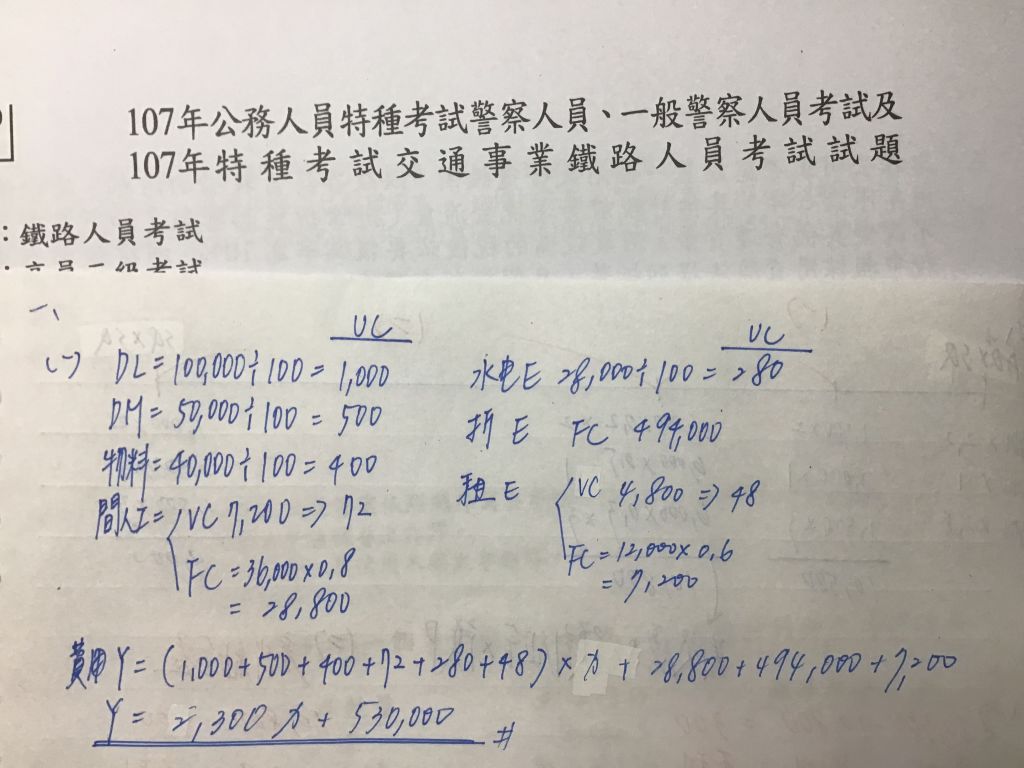 107年公務人員特種考試警察人員、一般警察人員考試及
107年特種考試交通事業鐵路人員考試試題
：鐵路人員考試
一、
(一)
VC
DL = 100,000÷100 = 1,000
DM = 50,000÷100 = 500
物料 = 40,000÷100 = 400
間人工 = VC 7,200 => 72
FC = 36,000×0.8
= 28,800
VC
水电E 28,000÷100 = 280
折E FC 494,000
租E VC 4,800 => 48
FC = 12,000×0.6
= 7,200
費用 Y = (1,000+500+400+72+280+48) × x + 28,800+494,000+7,200
Y = 2,300x + 530,000 #